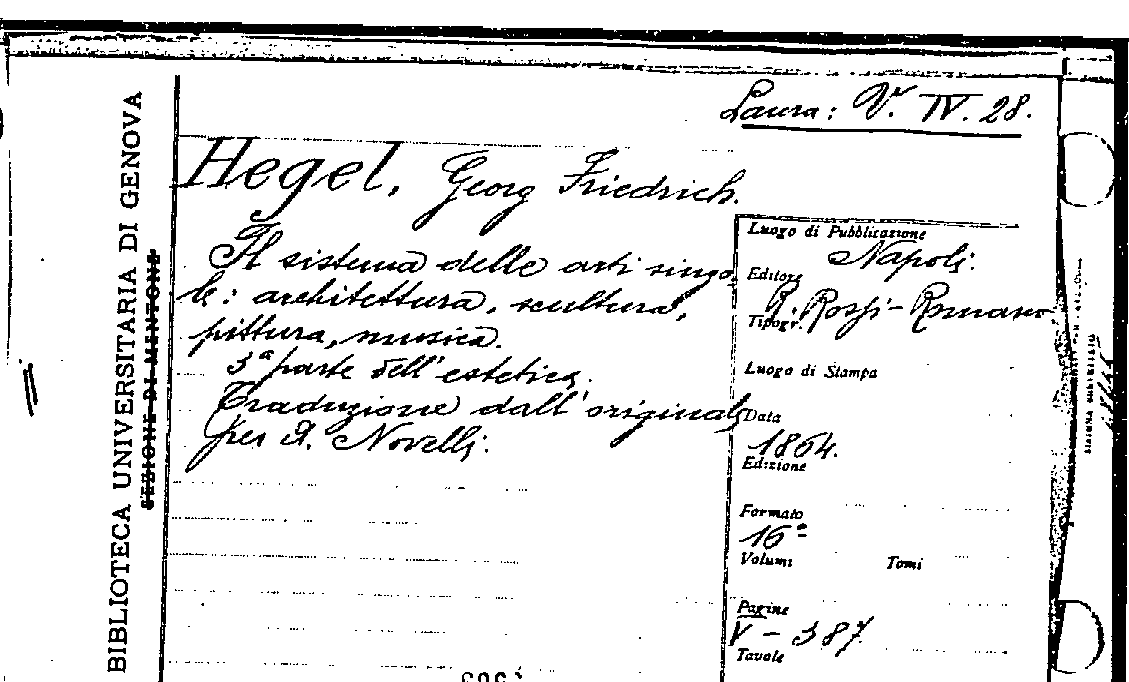 BIBLIOTECA UNIVERSITARIA DI GENOVA
SEZIONE DI MENTONE
Laura: V. IV. 28.
Hegel, Georg Friedrich.
Il sistema delle arti singo
le: architettura, scultura,
pittura, musica.
3ª parte dell'estetica.
Traduzione dall'originale
per A. Novelli.
Luogo di Pubblicazione
Napoli.
Editore
Rossi-Romano
Tipogr.
Luogo di Stampa
Data
1864.
Edizione
Formato
16°
Volumi Tomi
Pagine
V - 387
Tavole